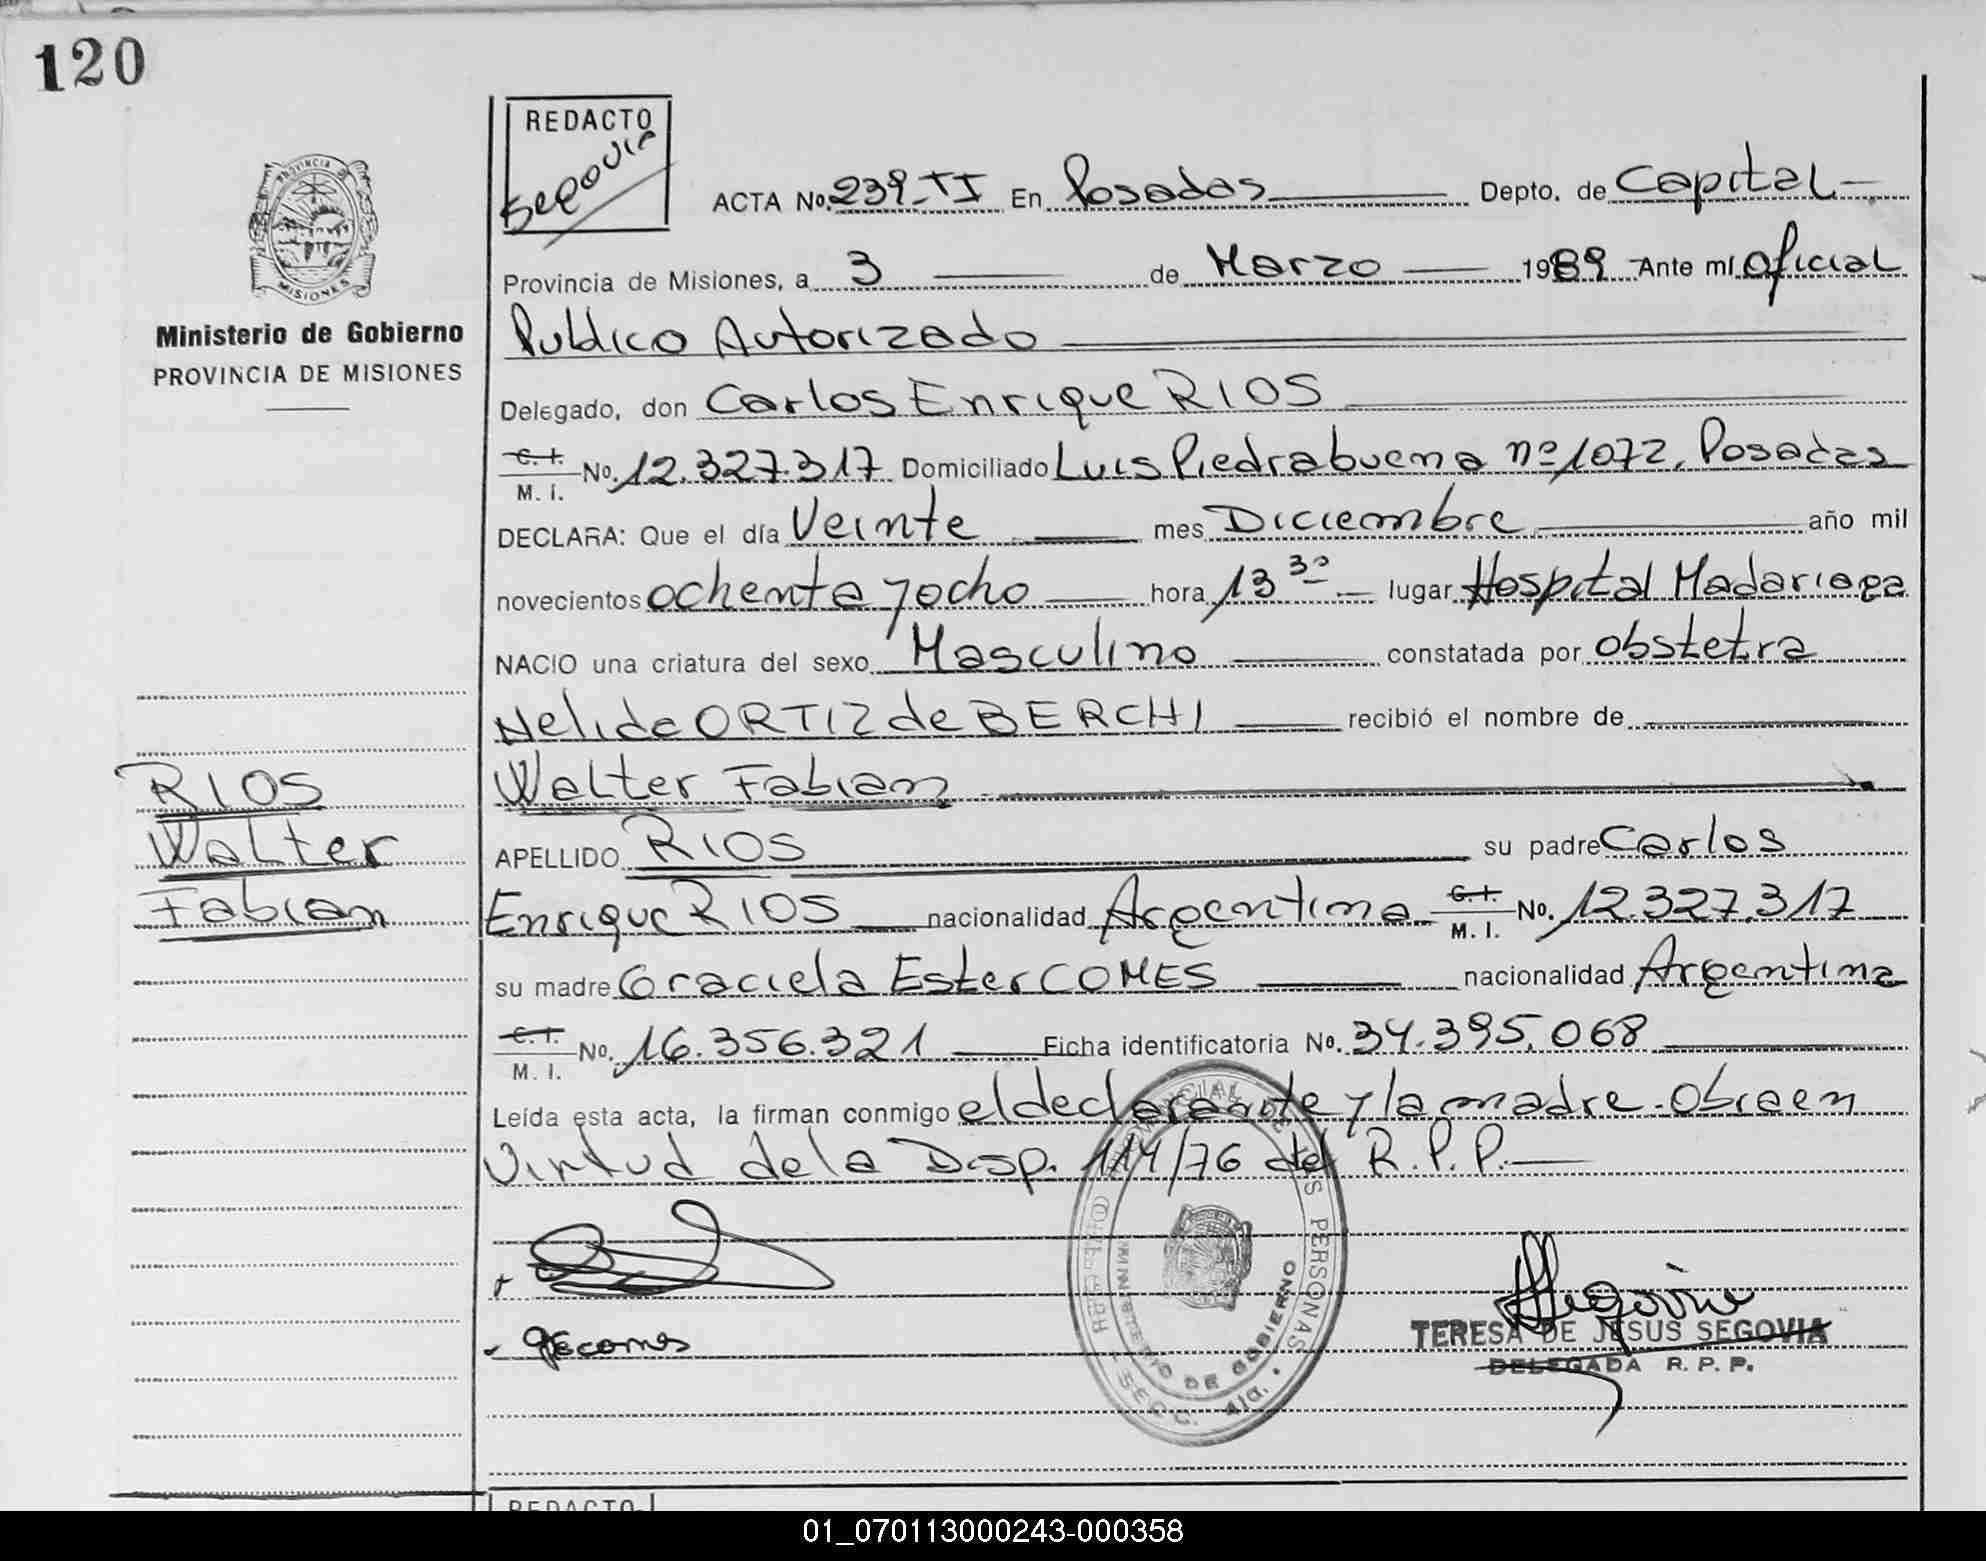 120
REDACTO
Segovia
PROVINCIA
MISIONES
Ministerio de Gobierno
PROVINCIA DE MISIONES
ACTA No. 239-TI En Posadas Depto. de Capital
Provincia de Misiones, a 3 de Marzo 1989 Ante mí Oficial
Publico Autorizado
Delegado, don Carlos Enrique RIOS
C. I. M. I. No. 12.327.317 Domiciliado Luis Piedrabuena nº 1072, Posadas
DECLARA: Que el día Veinte mes Diciembre año mil
novecientos ochenta y ocho hora 13 30 lugar Hospital Madariaga
NACIO una criatura del sexo Masculino constatada por obstetra
Nelida ORTIZ de BERCHI recibió el nombre de
Walter Fabian
APELLIDO RIOS su padre Carlos
Enrique RIOS nacionalidad Argentina C. I. M. I. No. 12.327.317
su madre Graciela Ester COMES nacionalidad Argentina
C. I. M. I. No. 16.356.321 Ficha identificatoria No. 34.395.068
Leída esta acta, la firman conmigo el declarante y la madre. Obra en
Virtud de la Disp. 114/76 del R.P.P.
RIOS
Walter
Fabian
GEcomes
REGISTRO PROVINCIAL DE LAS PERSONAS
MINISTERIO DE GOBIERNO
SECC. 4ta.
Segovia
TERESA DE JESUS SEGOVIA
DELEGADA R. P. P.
REDACTO
01_070113000243-000358